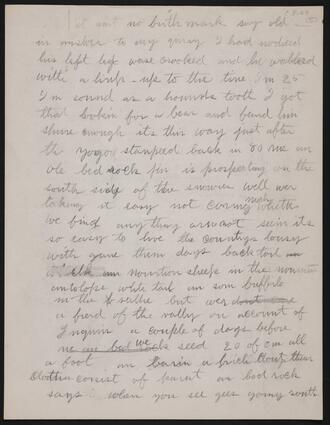 it aint no birth mark say old
in answer to my query I had noticed
his left leg was crooked and he walked
with a limp - up to the time I'm 25
I'm sound as a hounds tooth I got
that lookin for a bear and found him
shure enough its this way just after
the stampeed back in 80 me an
ole bed rock jim is prospecting on the
south side of the well wer
taking it easy not caring much wheth
we find any thing or not seem its
so easy to live the countrys lousy
with game them days back tail
elk an mountion sheep in the mountin
antolope while tail an som buffalo
in the but wer
a freid of the vally on account of
Ingins a couple of days before
me an bed rock seed 20 of em all
a foot an barin a brich clout ther
clothin consist of paint an bed rock
says when you see gees going south